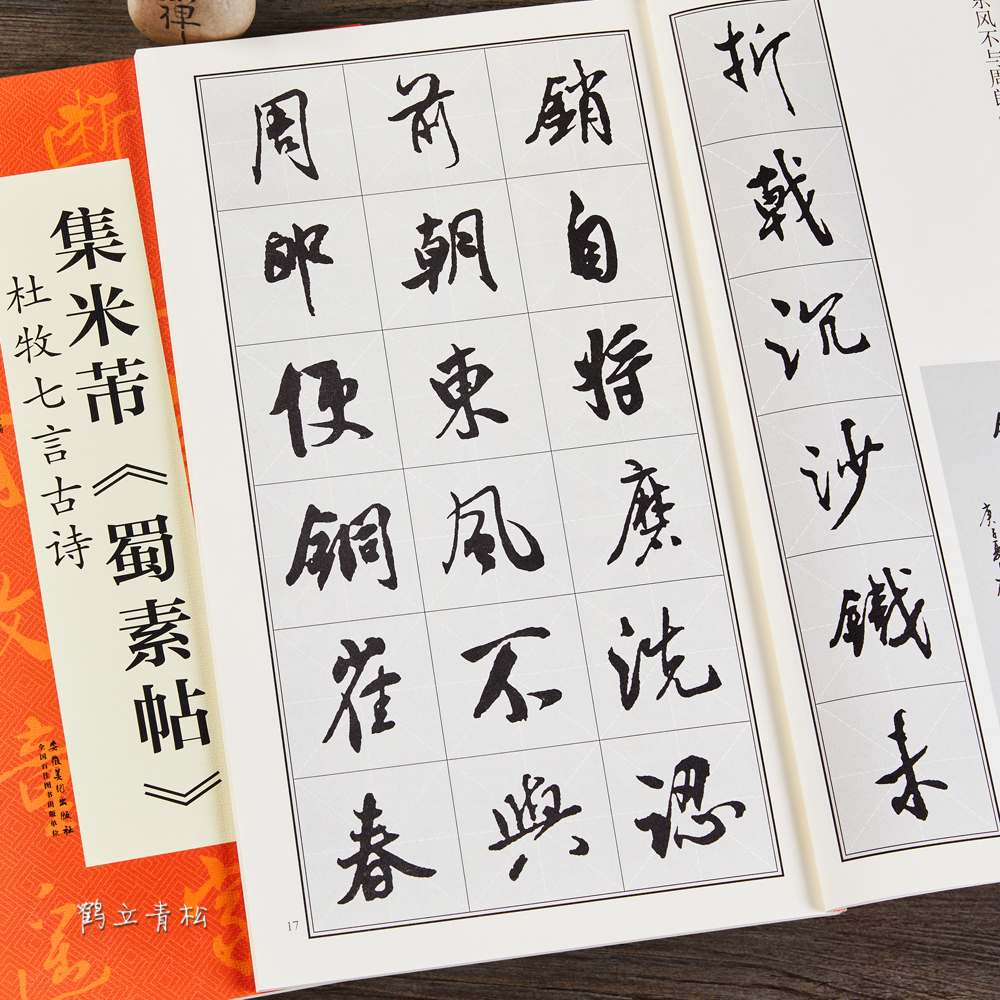 禪
风不与周
折戟沉沙鐵未
銷自將磨洗認
前朝東風不與
周郎便銅雀春
17
集米芾《蜀素帖》
杜牧七言古诗
安徽美术出版社
全国百佳图书出版单位
鹤立青松